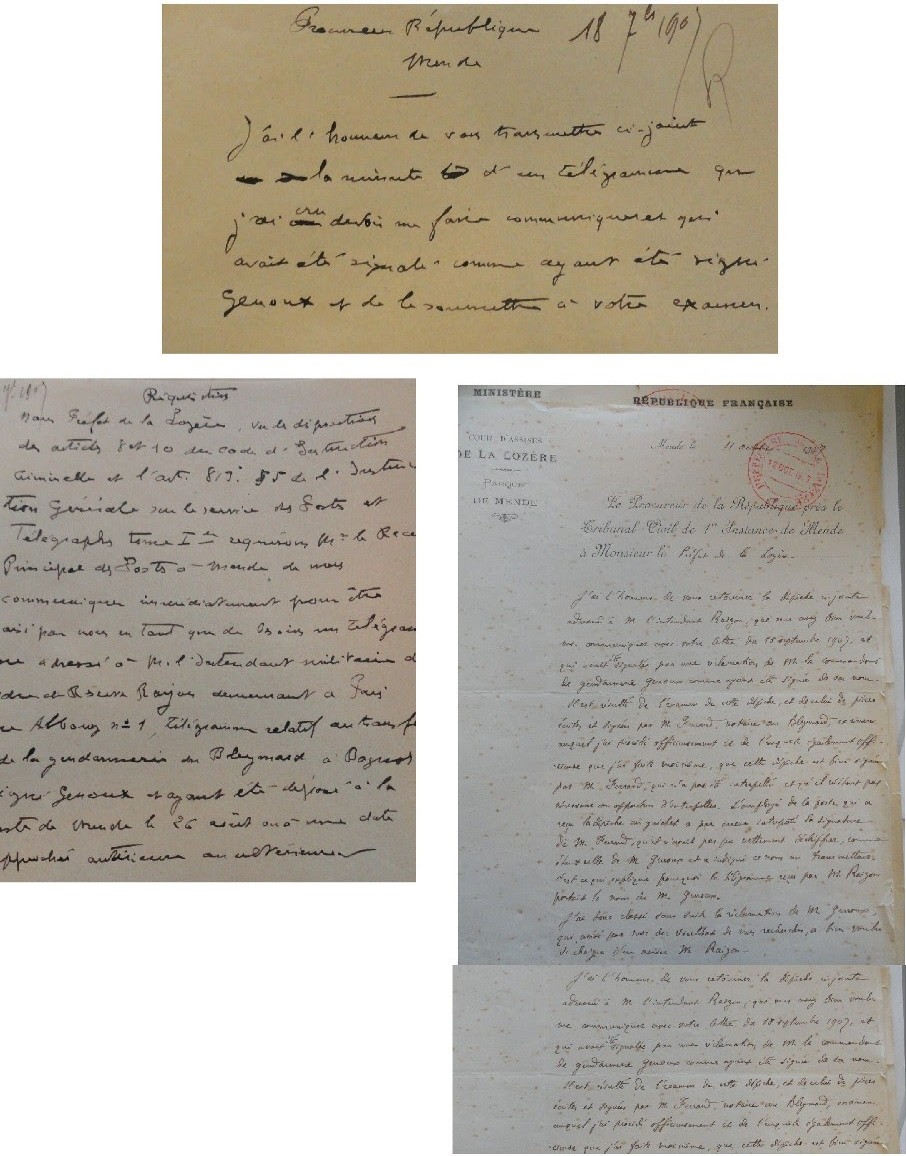 Procureur République
18 7bre 1907
Mende
R
J'ai l'honneur de vous transmettre ci-joint
la minute d'un télégramme que
j'ai cru devoir me faire communiquer et qui
avait été signalé comme ayant été signé
Genoux et de le soumettre à votre examen.
Réquisitions
Nous Préfet de la Lozère, vu les dispositions
des articles 8 et 10 du code d'Instruction
Criminelle et l'art. §5 de l'Instruc
tion Générale sur le service des Postes et
Télégraphes tome Ier requérons Mr le Rece
Principal des Postes à Mende de nous
communiquer immédiatement pour être
saisi par nous en tant que de besoin un télégram
me adressé à M. l'Intendant militaire d
de Réserve demeurant à Paris
n° 1, télégramme relatif au transfe
de la gendarmerie du Bleymard à Bagnols
signé Genoux et ayant été déposé à la
poste de Mende le 26 août ou à une date
approchée antérieure ou ultérieure
MINISTÈRE
RÉPUBLIQUE FRANÇAISE
COUR D'ASSISES
DE LA LOZÈRE
PARQUET
DE MENDE
Mende le 11 octobre 1907
Le Procureur de la République près le
Tribunal Civil de 1re Instance de Mende
à Monsieur le Préfet de la Lozère
J'ai l'honneur de vous retourner la dépêche ci-jointe
adressée à M. l'intendant Raizon, que vous avez bien voulu
me communiquer avec votre lettre du 18 septembre 1907, et
qui avait été signalée par une réclamation de M. le commandant
de gendarmerie Genoux comme ayant été signée de son nom.
Il est résulté de l'examen de cette dépêche, et de celui de pièces
écrites et signées par M. Ferrand, notaire au Bleymard, examen
auquel j'ai procédé officieusement et de l'enquête également offi-
cieuse que j'ai faite moi-même, que cette dépêche est bien signée
par M. Ferrand, qui n'a pas été interpellé et qu'il n'était pas
nécessaire ou opportun d'interpeller. L'employé de la poste qui a
reçu la dépêche au guichet a par erreur interprété la signature
de M. Ferrand, qu'il n'avait pas pu nettement déchiffrer, comme
étant celle de M. Genoux et a indiqué ce nom au transmetteur.
C'est ce qui explique pourquoi le télégramme reçu par M. Raizon
portait le nom de M. Genoux.
J'ai donc classé sans suite la réclamation de M. Genoux,
qui, avisé par moi du résultat de mes recherches, a bien voulu
se charger d'en aviser M. Raizon.
J'ai l'honneur de vous retourner la dépêche ci-jointe
adressée à M. l'intendant Raizon, que vous avez bien voulu
me communiquer avec votre lettre du 18 septembre 1907, et
qui avait été signalée par une réclamation de M. le commandant
de gendarmerie Genoux comme ayant été signée de son nom.
Il est résulté de l'examen de cette dépêche, et de celui de pièces
écrites et signées par M. Ferrand, notaire au Bleymard, examen
auquel j'ai procédé officieusement et de l'enquête également offi-
cieuse que j'ai faite moi-même, que cette dépêche est bien signée